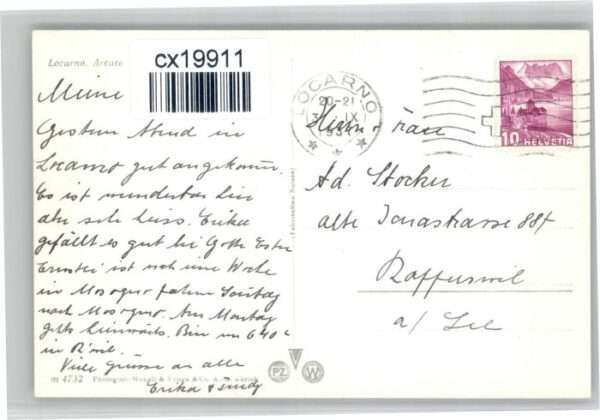 Locarno, Artate
cx19911
Meine
Gestern Abend in
Locarno gut angekomm.
Es ist wunderbar hier
aber sehr heiss. Erika
gefällt es gut bei Gotte Ester
ist noch eine Woche
in fahren Sonntag
nach Am Montag
gehts heimwärts. Bin um 6 40
in R'wil.
Viele Grüsse an alle
Erika &
LOCARNO
20-21
IX
10 HELVETIA
Herr & Frau
Ad. Stocker
alte Jonastrasse 887
Rapperswil
a/ See
m 4732
PZ W